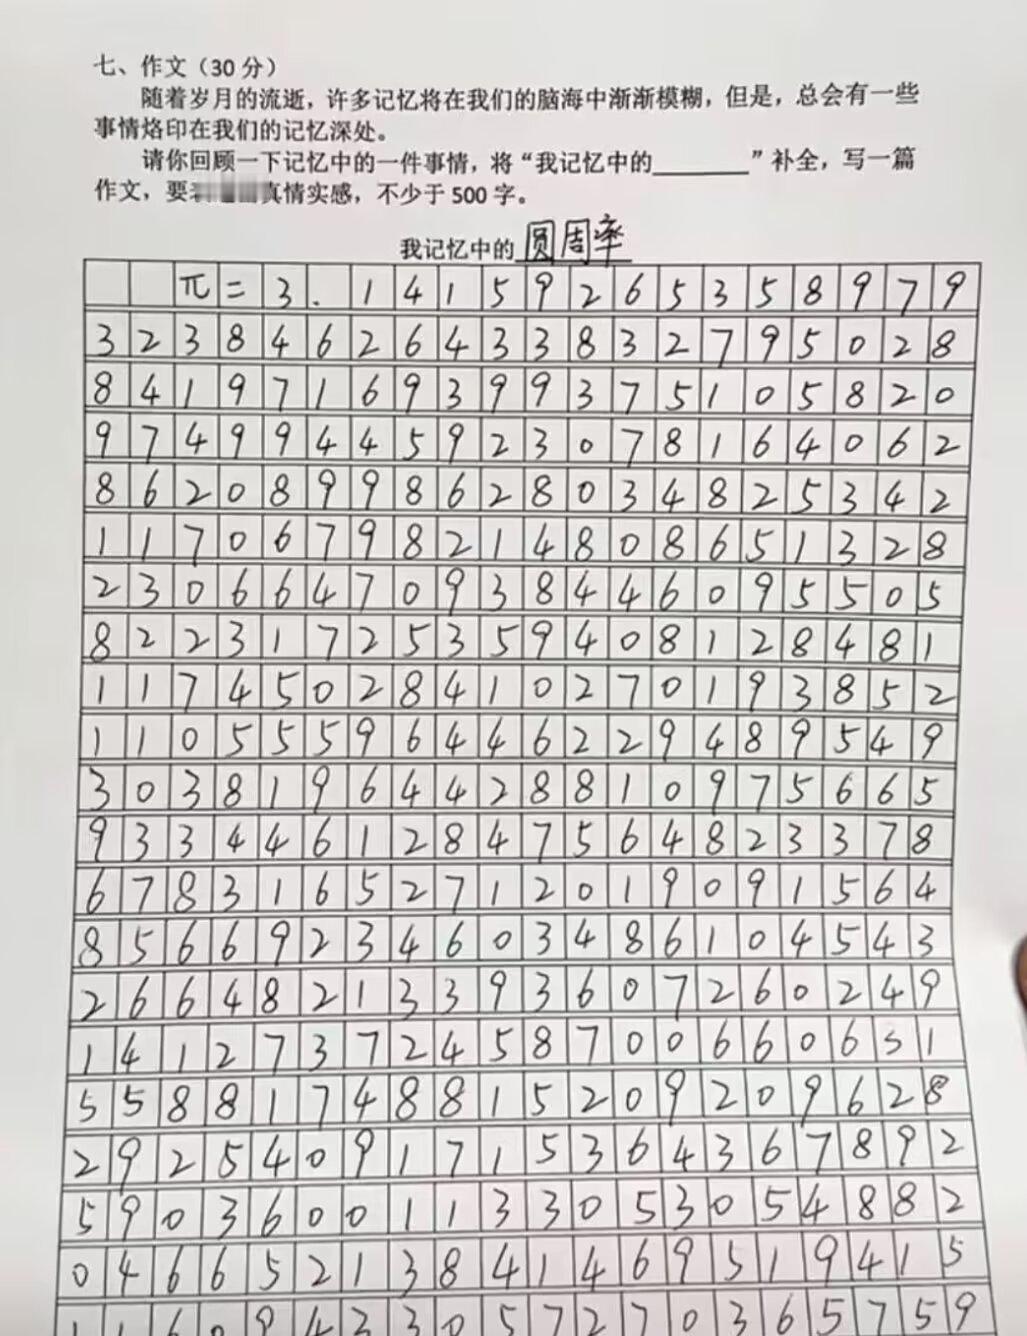 七、作文（30 分）
随着岁月的流逝，许多记忆将在我们的脑海中渐渐模糊，但是，总会有一些
事情烙印在我们的记忆深处。
请你回顾一下记忆中的一件事情，将“我记忆中的________”补全，写一篇
作文，要 真情实感，不少于 500 字。
我记忆中的 圆周率
π=3.14159265358979
32384626433832795028
84197169399375105820
97499445923078164062
86208998628034825342
11706798214808651328
23066470938446095505
82231725359408128481
11745028410270193852
11055596446229489549
30381964428810975665
93344612847564823378
67831652712019091564
85669234603486104543
26648213393607260249
14127372458700660631
55881748815209209628
29254091715364367892
59036001133053054882
04665213841469519415
11609433057270365759